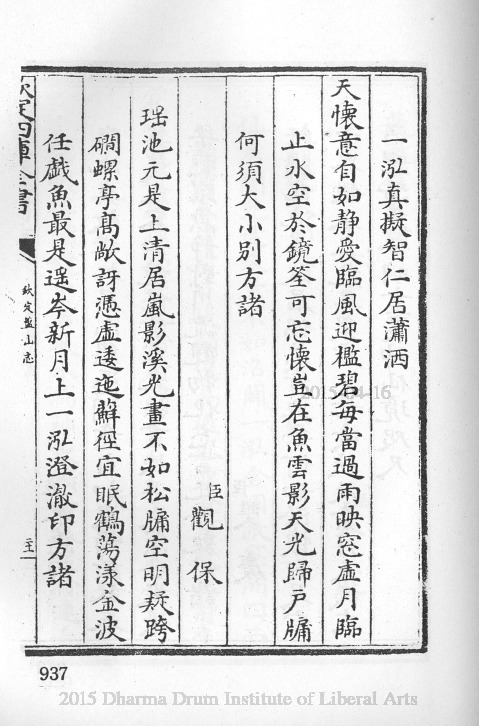 一泓真擬智仁居瀟洒
天懷意自如静愛臨風迎檻碧每當過雨映窓虚月臨
止水空於鏡筌可忘懷豈在魚雲影天光歸戶牖
何須大小別方諸
臣觀保
瑶池元是上清居嵐影溪光畫不如松牖空明疑跨
磵螺亭髙敞訝憑虚逶迤蘚徑宜眠鶴蕩漾金波
任戲魚最是遥岑新月上一泓澄澈印方諸
欽定四庫全書
欽定盤山志
二十一
2015-04-16
937
2015 Dharma Drum Institute of Liberal Arts